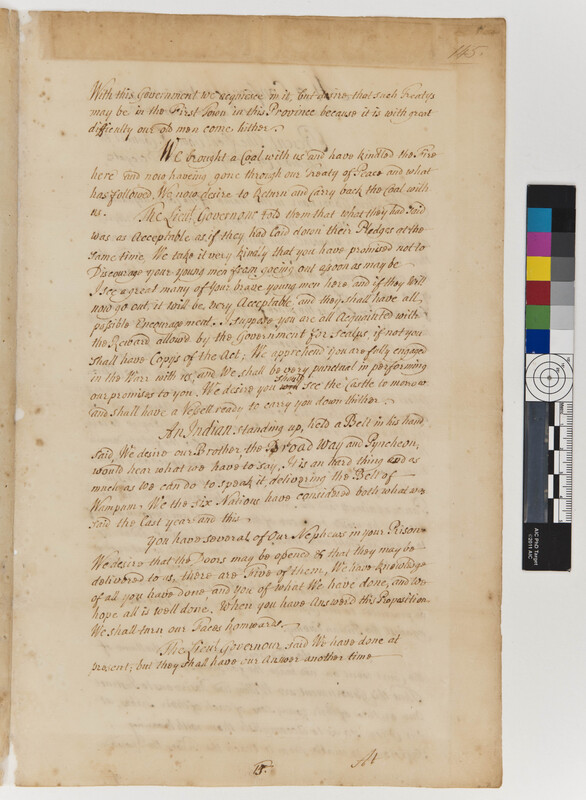 145.
With this Government we acquiesce in it, but desire, that such Treatys
may be in the First Town in this Province because it is with great
difficulty our old men come hither.
We brought a Coal with us and have kindled the Fire
here and now haveing gone through our Treaty of Peace and what
has followed, We now desire to Return and Carry back the Coal with
us. The Lieut. Governour told them that what they had said
was as Acceptable as if they had Laid down their Pledges at the
same time, We take it very kindly that you have promised not to
Discourage your young men from going out as soon as may be
I see a great many of your brave young men here and if they will
now go out, it will be very Acceptable and they shall have all
possible Encouragement. I suppose you are all Acquainted with
the Reward allowed by the Government for Scalps, if not you
shall have Copys of the Act; We apprehend you are fully engaged
in the Warr with us, and We shall be very punctual in performing
our promises to you, We desire you should see the Castle to morrow
and shall have a Vessell ready to carry you down thither.
An Indian standing up, held a Belt in his hand
said We desire our Brother, the Broad Way and Pyncheon,
would hear what we have to say, It is an hard thing and as
much as we can do to speak it, delivering the Belt of
Wampum, We the six Nations have considered both what we
said the Last year and this
You have several of Our Nephews in your Prison
We desire that the Doors may be opened & that they may be
delivered to us, there are Five of them, We have knowledge
of all you have done and you of what We have done, and we
hope all is well done, When you have Answerd this Proposition
We shall turn our Faces homwards.
The Lieut. Governour said We have done at
present; but they shall have our Answer another time
At